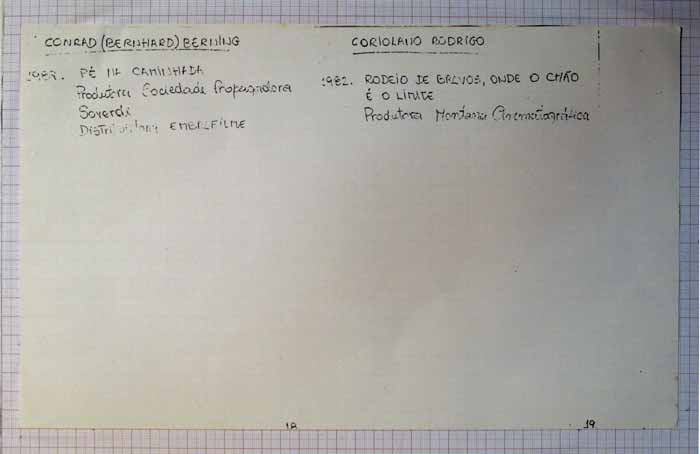 CONRAD (BERNHARD) BERNING
PÉ NA CAMINHADA
Produtora Sociedade Propagadora
Soverdi
Distribuidora EMBRAFILME
18
CORIOLANO RODRIGO
1982. RODEIO DE BRAVOS, ONDE O CHÃO
É O LIMITE
Produtora Montana Cinematográfica
19